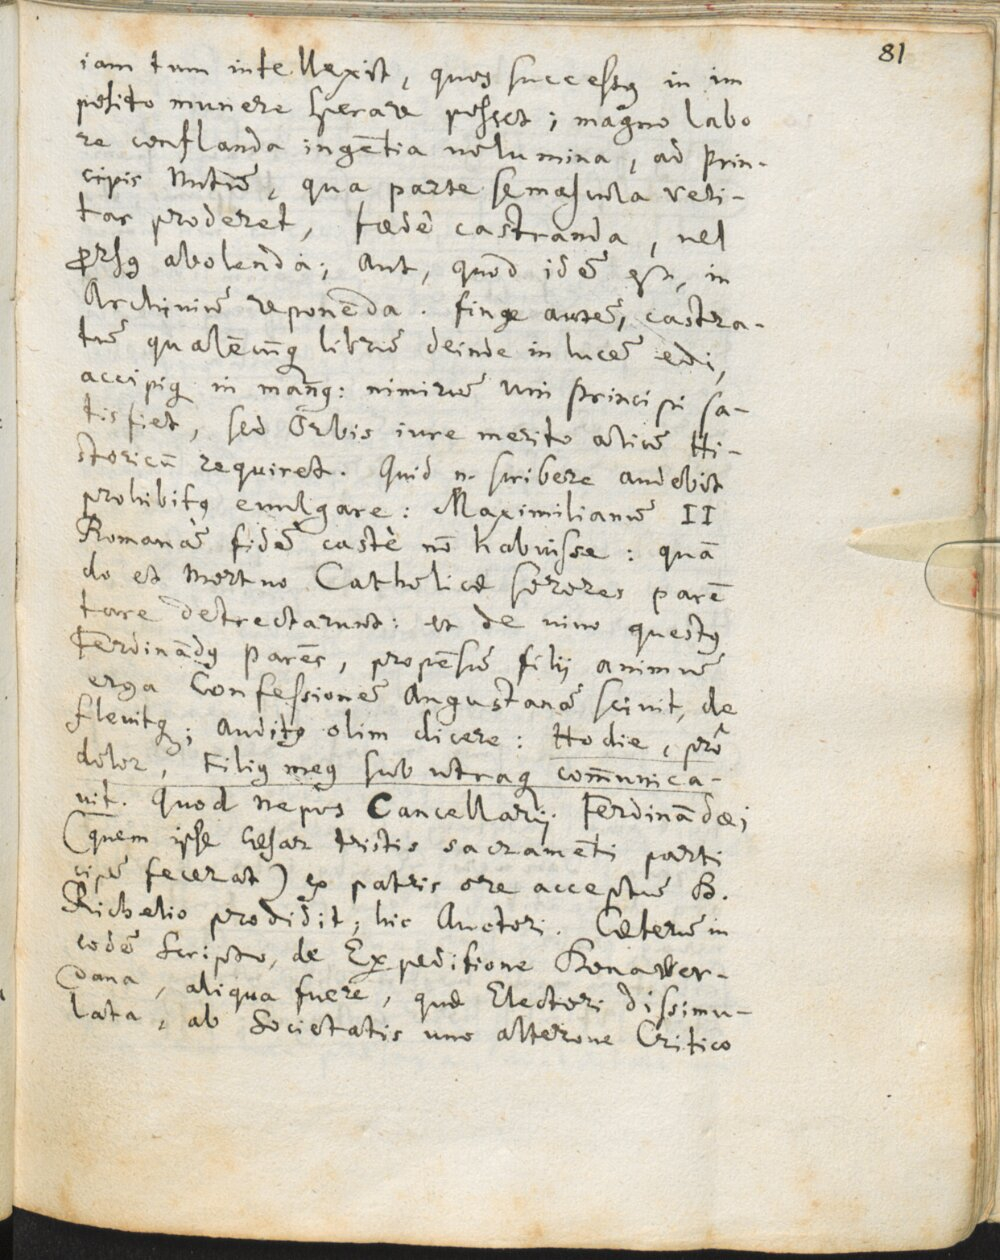 81
iam tum intellexit, quos successus in im
posito munere sperare posset; magno labo
re conflanda ingētia volumina, ad Prin-
cipis Nutū, qua parte semascula veri-
tas proderet, fœdè castranda, vel
prorsus abolenda; Aut, quod idē est, in
Archiviū reponēda. finge autē, castra-
tū qualēcunque libriū deinde in lucē edi,
accipi in manus: nimirū Uni Principi sa-
tisfiet, sed Orbis iure merito aliū Hi-
storicū requiret. Quid n. scribere audebit
prohibitus evulgare: Maximilianū II
Romanā fidē castè nō habuisse: quā
do et Mortuo Catholicæ sorores parē
tare detrectarunt: et de vivo questus
Ferdinādus Parēs, propēsū filij animū
erga Confessionē Augustanā scivit, de
flevitque; auditus olim dicere: Hodie, prô
dolor, Filius meus sub utraque com̄unica-
vit. Quod Nepos Cancellarij Ferdinādæi
(quem ipse Cæsar tristis sacramēti parti
cipē fecerat) ex patris ore acceptū B.
Richelio prodidit, hic Auctori. Cæterū in
eodē Scripto, de Expeditione Bonawer-
dana, aliqua fuere, quæ Electori dissimu-
lata, ab Societatis uno alterove Critico